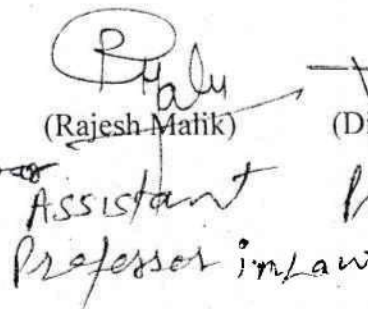 (Rajesh Malik) (Di
Assistant P
Professor in Law